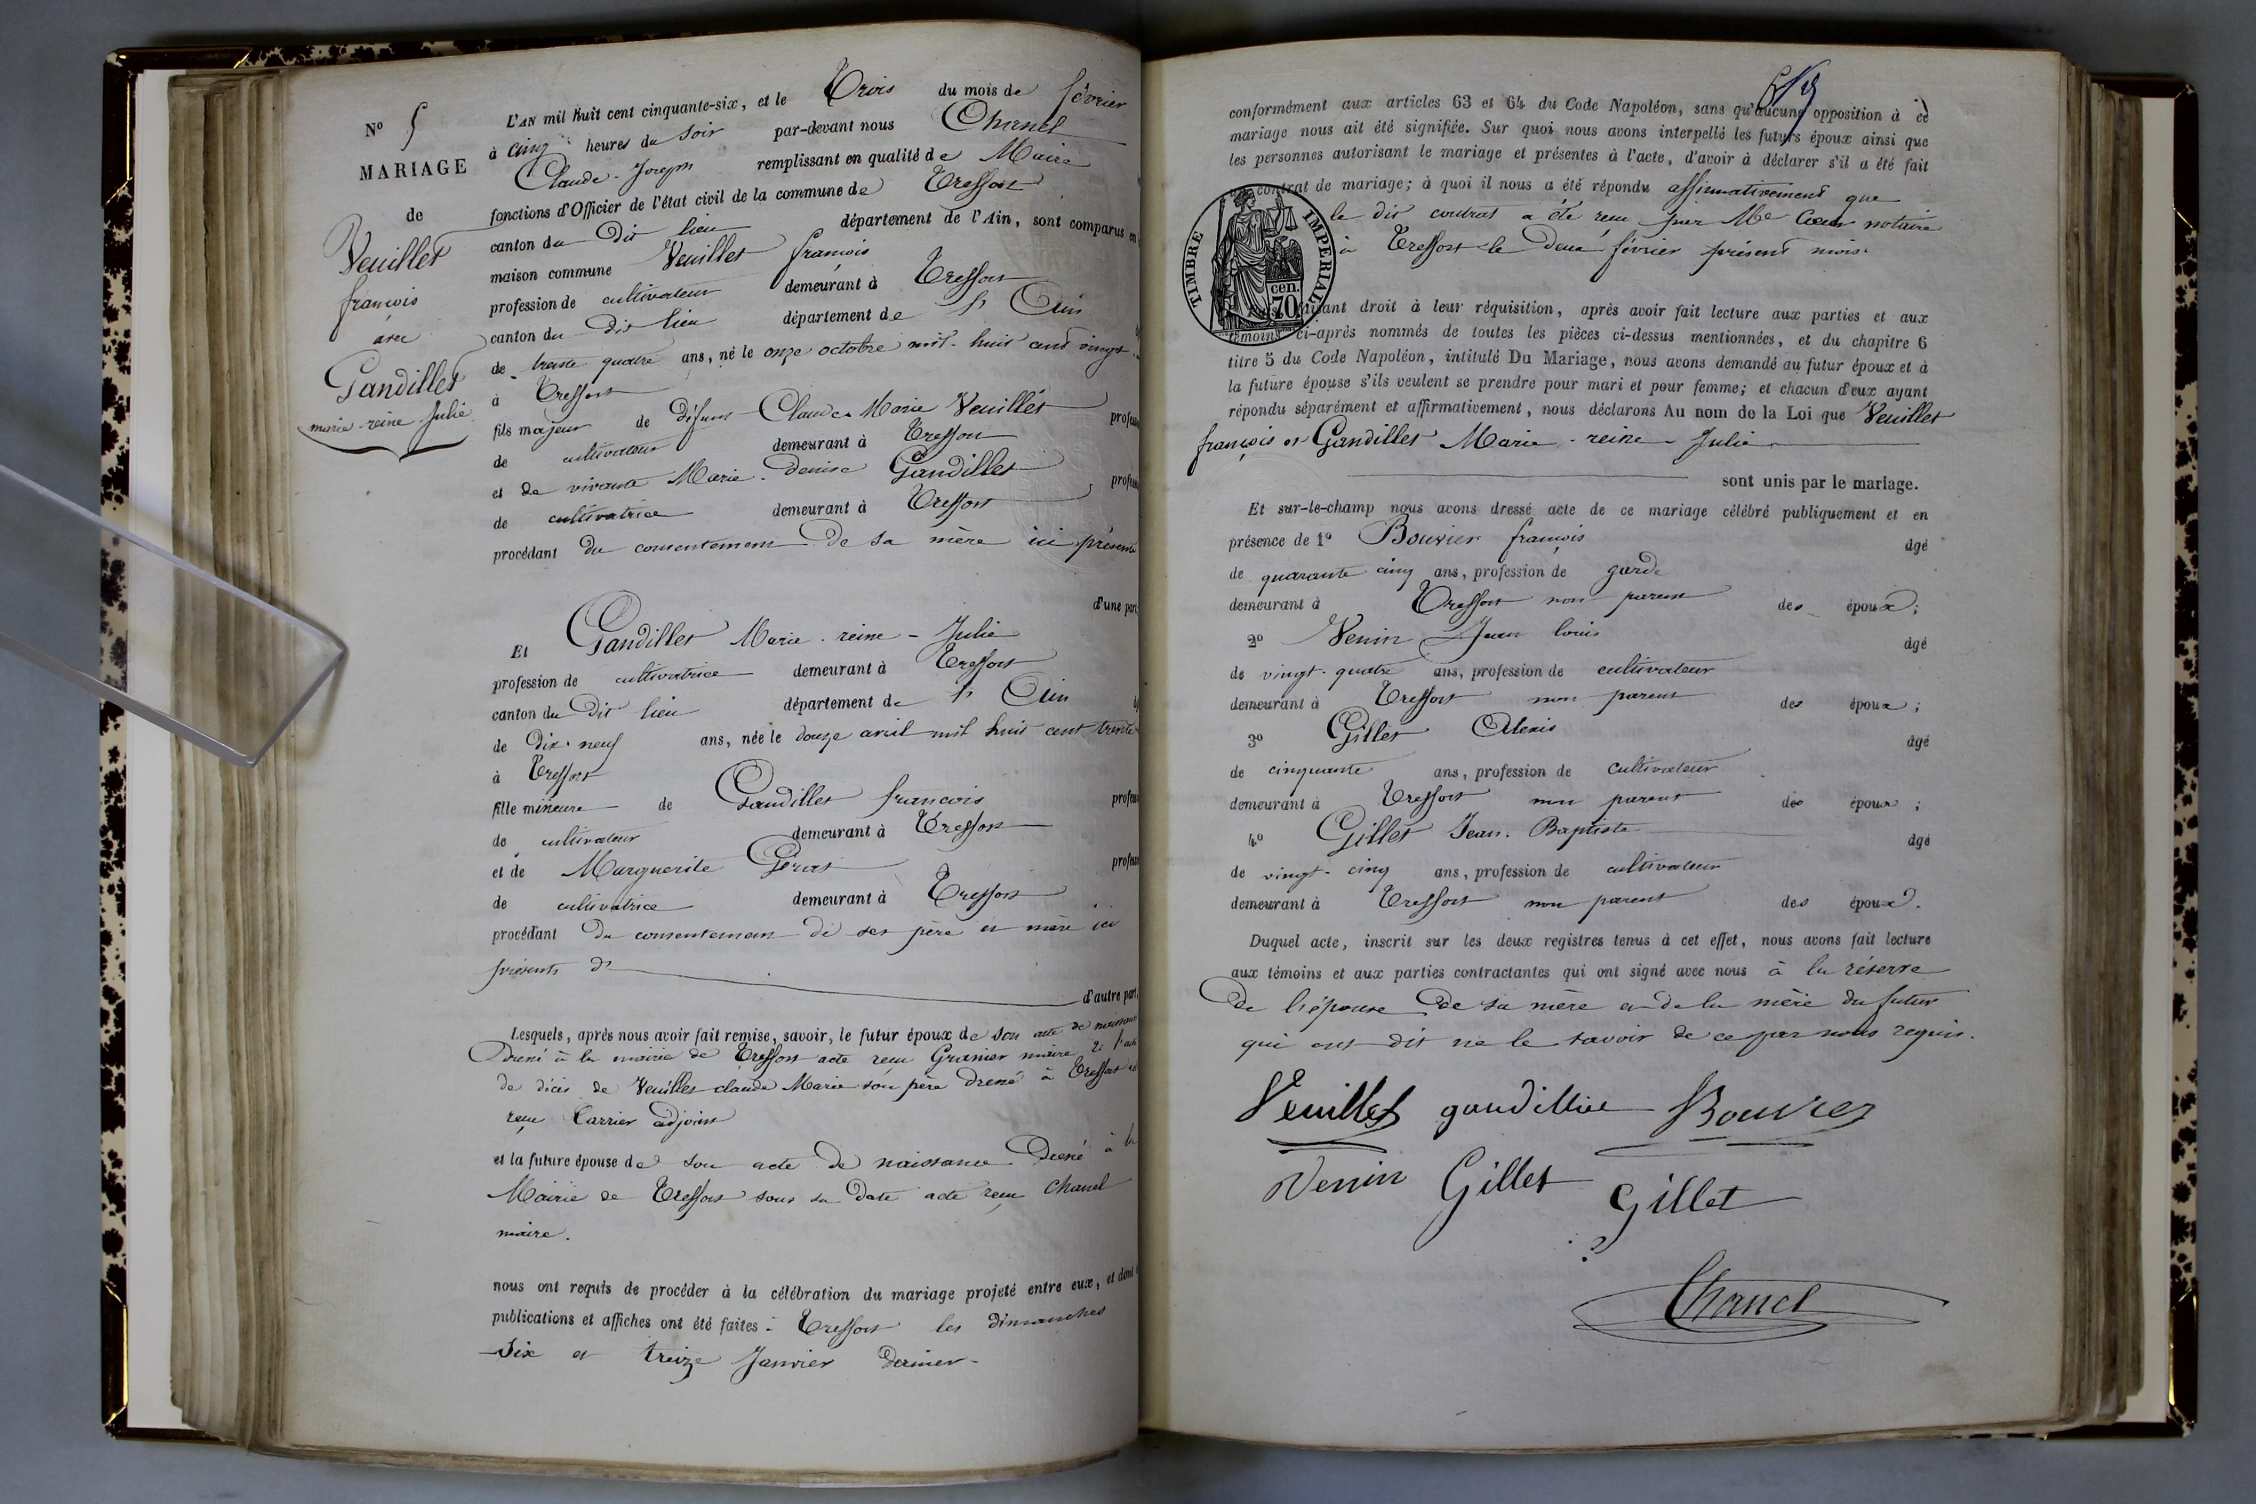 N° 5
MARIAGE
de
Veuillet
françois
avec
Gandillet
marie-reine-Julie
L'AN mil huit cent cinquante-six, et le Trois du mois de février
à cinq heures du soir par-devant nous Chanel
Claude-Joseph remplissant en qualité de Maire
fonctions d'Officier de l'état civil de la commune de Treffort
canton du Dit lieu département de l'Ain, sont comparus en
maison commune Veuillet françois
profession de cultivateur demeurant à Treffort
canton du Dit lieu département de l'Ain
de trente quatre ans, né le onze octobre mil-huit cent vingt
à Treffort
fils majeur de défunt Claude Marie Veuillet profess
de cultivateur demeurant à Treffort
et de vivante Marie-Denise Gandillet profess
de cultivatrice demeurant à Treffort
procédant du consentement de sa mère ici présente
d'une part
Et Gandillet Marie-reine-Julie
profession de cultivatrice demeurant à Treffort
canton du Dit lieu département de l'Ain
de dix-neuf ans, née le douze avril mil huit cent trente
à Treffort
fille mineure de Gandillet françois profess
de cultivateur demeurant à Treffort
et de Marguerite profess
de cultivatrice demeurant à Treffort
procédant du consentement de ses père et mère ici
présents d'
d'autre part,
Lesquels, après nous avoir fait remise, savoir, le futur époux de son acte de naissance
Dressé à la mairie de Treffort acte reçu Granier maire 2° l'acte
de décès de Veuillet claude Marie son père dressé à Treffort et
reçu Carrier adjoint
et la future épouse de son acte de naissance Dressé à la
Mairie de Treffort sous sa date acte reçu Chanel
maire.
nous ont requis de procéder à la célébration du mariage projeté entre eux, et dont
publications et affiches ont été faites à Treffort les dimanches
Six et treize Janvier dernier
conformément aux articles 63 et 64 du Code Napoléon, sans qu'aucune opposition à ce
mariage nous ait été signifiée. Sur quoi nous avons interpellé les futurs époux ainsi que
les personnes autorisant le mariage et présentes à l'acte, d'avoir à déclarer s'il a été fait
contrat de mariage; à quoi il nous a été répondu affirmativement que
le dit contrat a été reçu par Me notaire
à Treffort le Deux février présent mois.
TIMBRE IMPERIAL
70 cen.
faisant droit à leur réquisition, après avoir fait lecture aux parties et aux
témoins ci-après nommés de toutes les pièces ci-dessus mentionnées, et du chapitre 6
titre 5 du Code Napoléon, intitulé Du Mariage, nous avons demandé au futur époux et à
la future épouse s'ils veulent se prendre pour mari et pour femme; et chacun d'eux ayant
répondu séparément et affirmativement, nous déclarons Au nom de la Loi que Veuillet
françois et Gandillet Marie-reine-Julie
sont unis par le mariage.
Et sur-le-champ nous avons dressé acte de ce mariage célébré publiquement et en
présence de 1° Bouvier françois âgé
de quarante cinq ans, profession de garde
demeurant à Treffort non parent des époux;
2° Venin Jean louis âgé
de vingt-quatre ans, profession de cultivateur
demeurant à Treffort non parent des époux;
3° Gillet Alexis âgé
de cinquante ans, profession de cultivateur
demeurant à Treffort non parent des époux;
4° Gillet Jean-Baptiste âgé
de vingt-cinq ans, profession de cultivateur
demeurant à Treffort non parent des époux.
Duquel acte, inscrit sur les deux registres tenus à cet effet, nous avons fait lecture
aux témoins et aux parties contractantes qui ont signé avec nous à la réserve
de l'épouse de sa mère et de la mère du futur
qui ont dit ne le savoir de ce par nous requis.
Veuillet gandillet Bouvier
Venin Gillet Gillet
Chanel